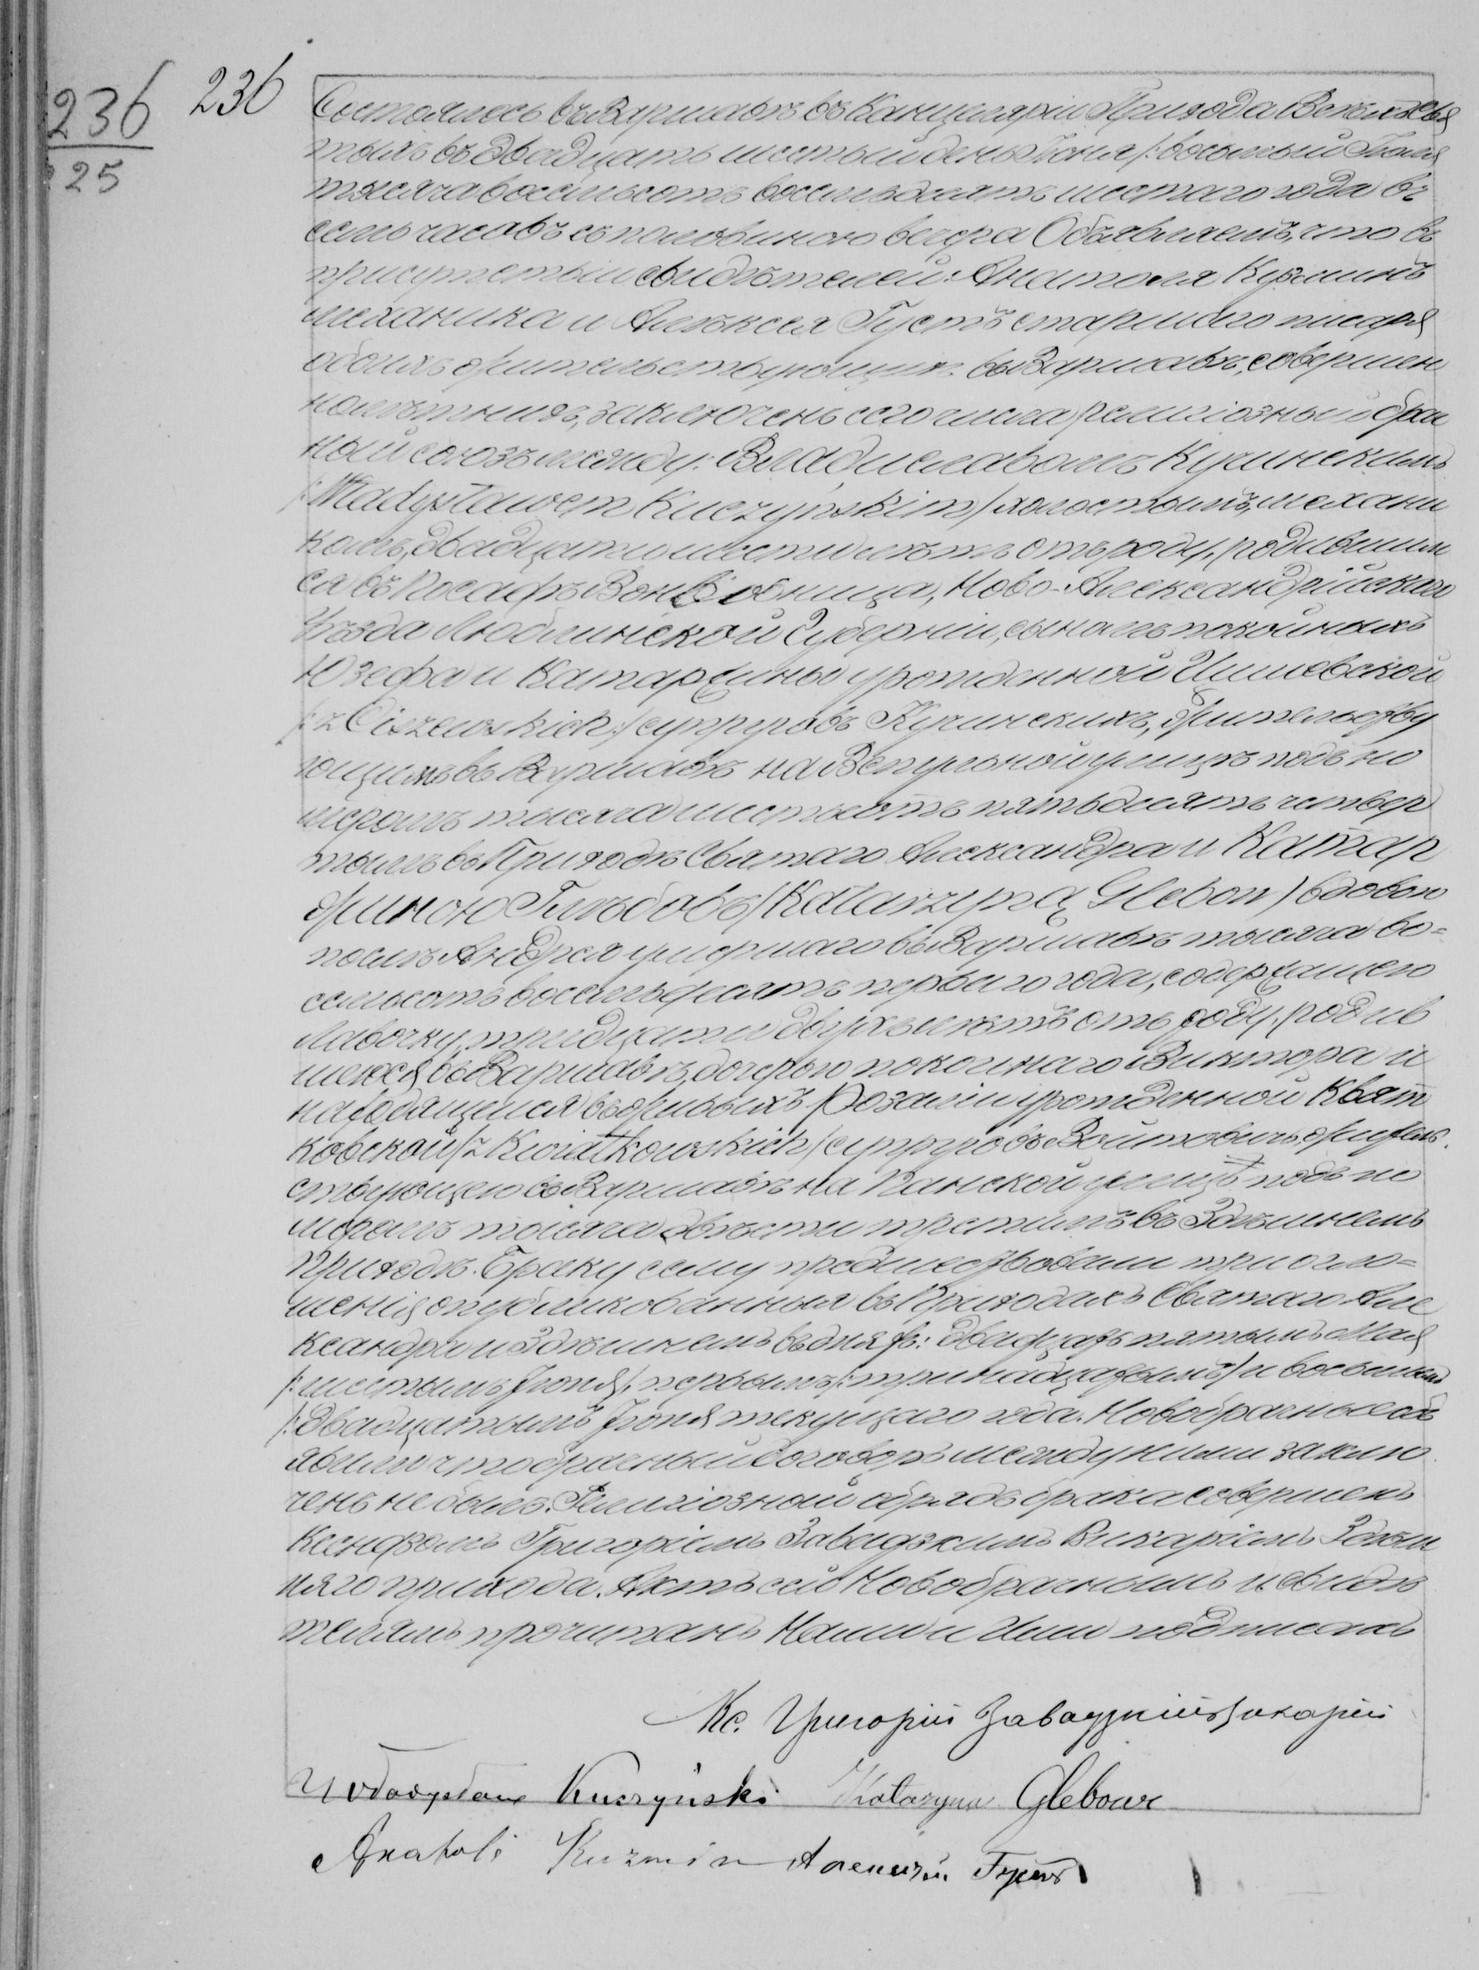 236 236
25
Состоялось въ Варшавѣ въ Канцеляріи Прихода Всѣхъ Свя
тыхъ въ двадцать шестый день Іюня /: восьмый Іюля
тысяча восемьсотъ восемьдесятъ шестаго года въ
семь часовъ съ половиною вечера Объявляемъ, что въ
присутствіи свидѣтелей: Анатоля Кузминъ
механика и Алексѣя Густъ старшаго писаря
обоихъ жительствующихъ въ Варшавѣ, совершен
нолѣтнихъ, заключенъ сего числа религіозный брач
ный союзъ между: Владиславомъ Кучинскимъ
/: Władysławem Kuczyńskim / холостымъ, механи
комъ, двадцати шести лѣтъ отъ роду, родившим
ся въ Посадѣ Вонвольница, Ново-Александрійскаго
Уѣзда Люблинской Губерніи, сыномъ покойныхъ
Юзефа и Катаржины урожденной Цишевской
/: z Ciszewskich :/ супруговъ Кучинскихъ, жительству
ющимъ въ Варшавѣ на Вспульной улицѣ подъ но
меромъ тысяча шестьсотъ пятьдесятъ четвер
тымъ въ Приходѣ Святаго Александра и Катар
жиною Глѣбовъ /Katarzyną Glebow / вдовою
послѣ Андрея умершаго въ Варшавѣ тысяча во=
семьсотъ восемьдесятъ перваго года, содержащею
лавочку, тридцати двухъ лѣтъ отъ роду, родив
шеюся въ Варшавѣ, дочерью покойнаго Виктора и
находящейся въ живыхъ Розаліи урожденной Квят
ковской /z Kwiatkowskich / супруговъ Войтовичъ, житель
ствующею въ Варшавѣ на Панской улицѣ подъ но
меромъ тысяча двѣсти третимъ въ Здѣшнемъ
Приходѣ. Браку сему предшествовали три огла=
шенія опубликованныя въ Приходахъ Святаго Але
ксандра и Здѣшнемъ въ дняхъ: двадцать пятымъ Мая
/: шестымъ Іюня /, первымъ /: тринадцатымъ / и восьмымъ
/: двадцатымъ Іюня текущаго года. Новобрачные объ
явили что брачный договоръ между ними заклю
ченъ не былъ. Религіозный обрядъ брака совершенъ
Ксендзомъ Григоріемъ Завадзкимъ Викаріемъ Здѣш
няго прихода. Актъ сей Новобрачнымъ и свидѣ
телямъ прочитанъ Нами и Ими подписанъ
Кс. Григорій Завадзкій Викарій
Władysław Kuczyński Katarzyna Glebow
Anatoli Kuzmin Алексѣй Густъ